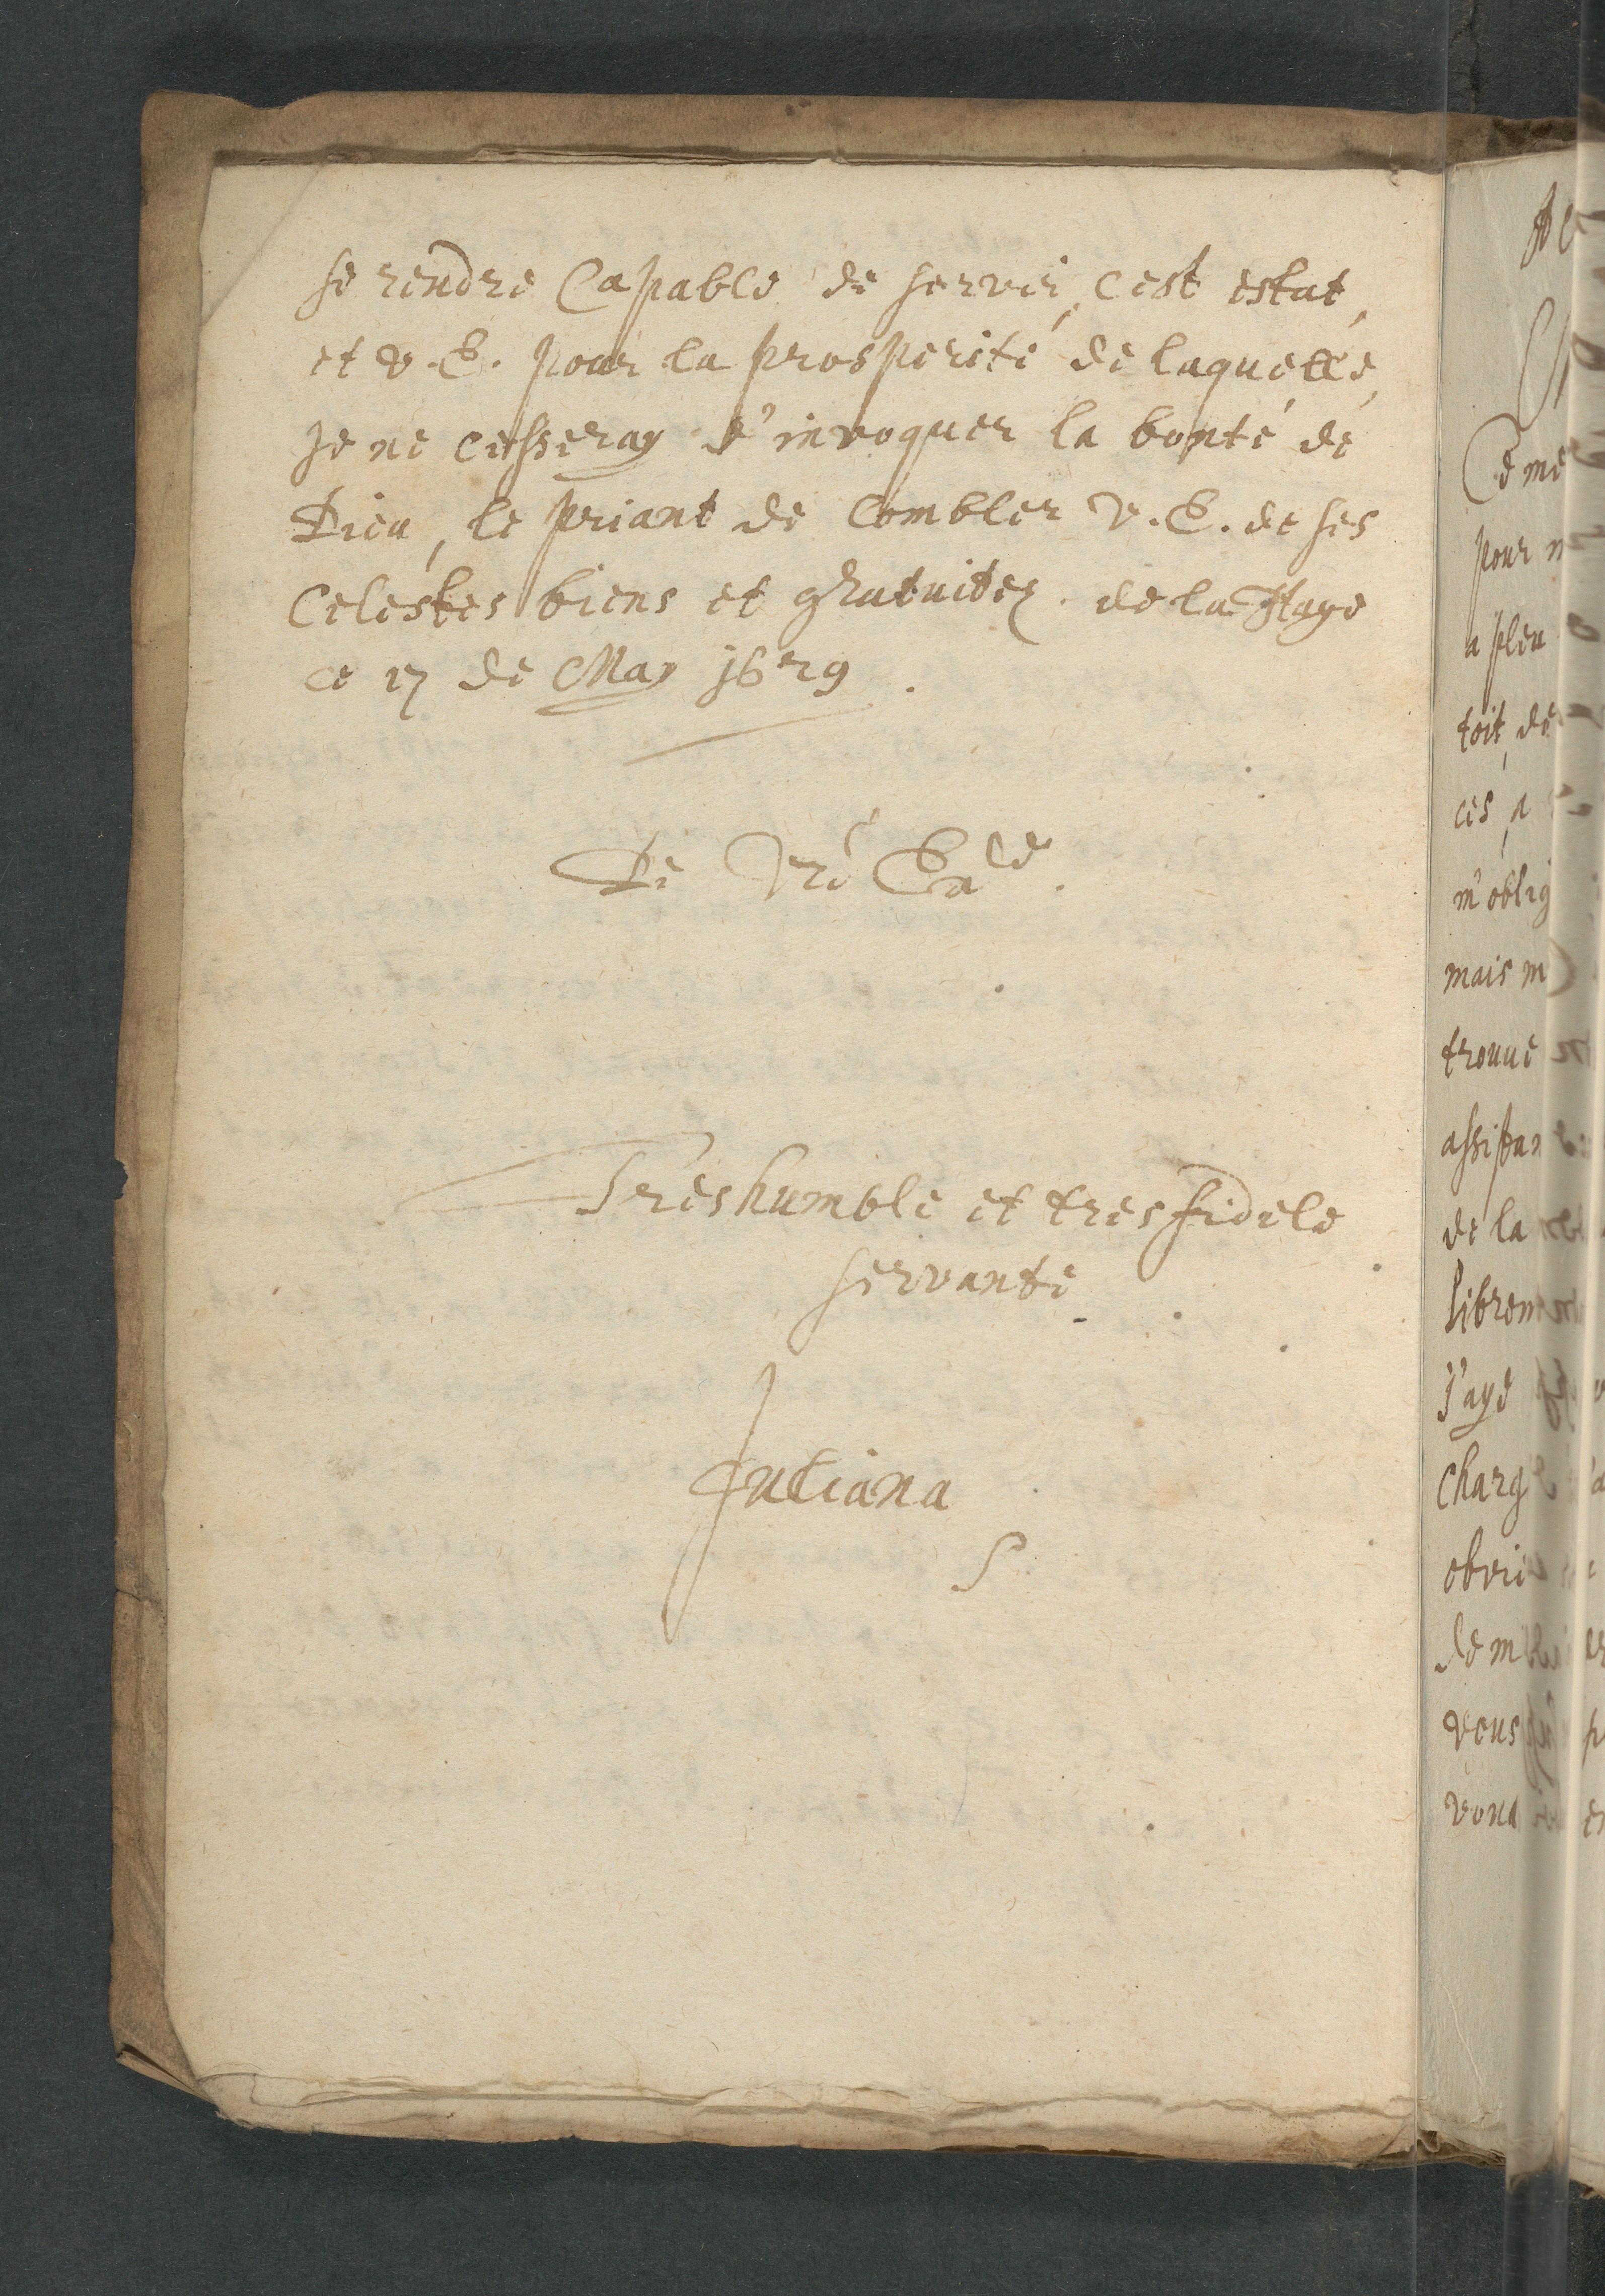 se rendre Capable de servir, cest estat,
et v. E. pour la prosperité de laquelle,
Je ne cesseray d'invoquer la bonté de
Dieu, le priant de Combler V. E. de ses
Celestes biens et gratuitez. de la Haye
ce 17 de May 1629.
De Vré Ex<sup>ce</sup>.
Treshumble et tresfidele
servante
Juliana
S
pour
a pleu
toit, de
ces, a
m'oblig
mais m
trouve
assistan
de la
librem
J'aye
Charg
obvi
de m
vous